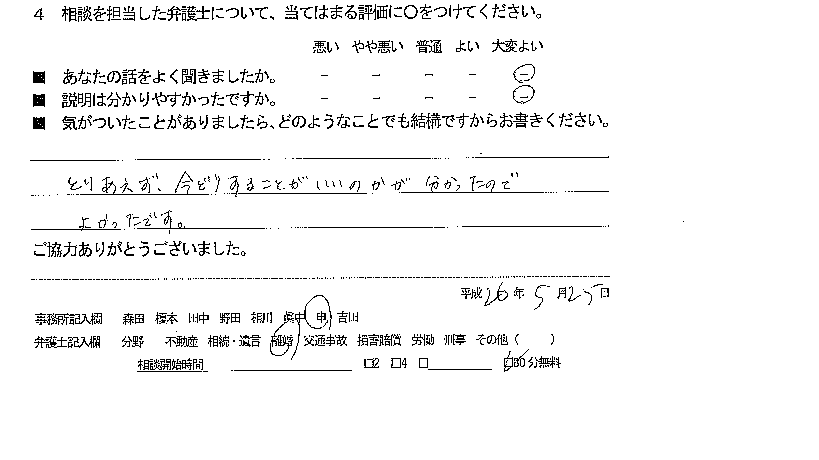 4 相談を担当した弁護士について、当てはまる評価に○をつけてください。
悪い やや悪い 普通 よい 大変よい
■ あなたの話をよく聞きましたか。 － － － － －
■ 説明は分かりやすかったですか。 － － － － －
■ 気がついたことがありましたら、どのようなことでも結構ですからお書きください。
とりあえず、今どうすることがいいのかが 分かったので
よかったです。
ご協力ありがとうございました。
平成 26 年 5 月 25 日
事務所記入欄 森田 榎本 田中 野田 相川 申 吉川
弁護士記入欄 分野 不動産 相続・遺言 離婚 交通事故 損害賠償 労働 刑事 その他（ ）
相談開始時間 □2 □4 □ □60分無料